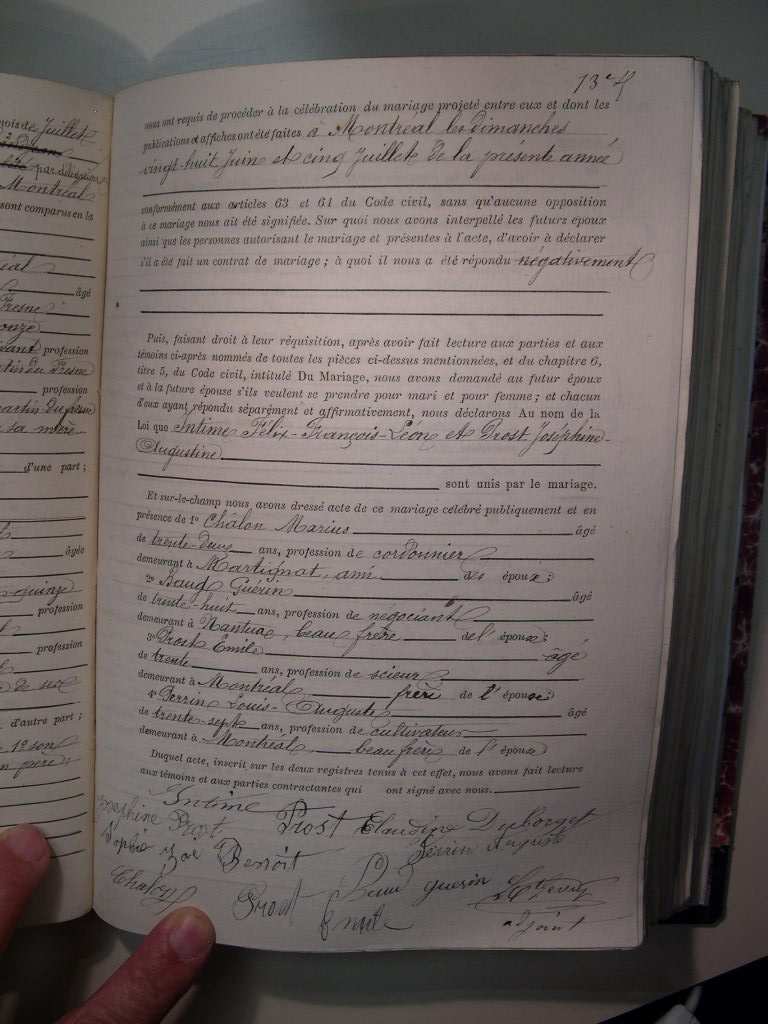 mois de Juillet
par délégation
Montréal
sont comparus en la
âgé
profession
profession
sa mère
d'une part ;
âgée
profession
profession
d'autre part ;
13
nous ont requis de procéder à la célébration du mariage projeté entre eux et dont les
publications et affiches ont été faites à Montréal les dimanches
vingt-huit Juin et cinq Juillet de la présente année
conformément aux articles 63 et 64 du Code civil, sans qu'aucune opposition
à ce mariage nous ait été signifiée. Sur quoi nous avons interpellé les futurs époux
ainsi que les personnes autorisant le mariage et présentes à l'acte, d'avoir à déclarer
s'il a été fait un contrat de mariage ; à quoi il nous a été répondu négativement
Puis, faisant droit à leur réquisition, après avoir fait lecture aux parties et aux
témoins ci-après nommés de toutes les pièces ci-dessus mentionnées, et du chapitre 6,
titre 5, du Code civil, intitulé Du Mariage, nous avons demandé au futur époux
et à la future épouse s'ils veulent se prendre pour mari et pour femme ; et chacun
d'eux ayant répondu séparément et affirmativement, nous déclarons Au nom de la
Loi que Intime Félix-François-Léon et Prost Joséphine-
Augustine
sont unis par le mariage.
Et sur-le-champ nous avons dressé acte de ce mariage célébré publiquement et en
présence de 1° Châlon Marius âgé
de trente-deux ans, profession de cordonnier
demeurant à Martignat, ami des époux ;
2° Baud Guérin âgé
de trente-huit ans, profession de négociant
demeurant à Nantua, beau frère de l'époux ;
3° Prost Emile âgé
de trente ans, profession de scieur
demeurant à Montréal frère de l'épouse ;
4° Perrin Louis-Auguste âgé
de trente-sept ans, profession de cultivateur
demeurant à Montréal, beau frère de l'épouse
Duquel acte, inscrit sur les deux registres tenus à cet effet, nous avons fait lecture
aux témoins et aux parties contractantes qui ont signé avec nous.
Intime
Joséphine Prost Prost Claudine Duborget
Sophie Zoé Benoit Perrin Auguste
Chalon Prost Emile Baud guerin
adjoint